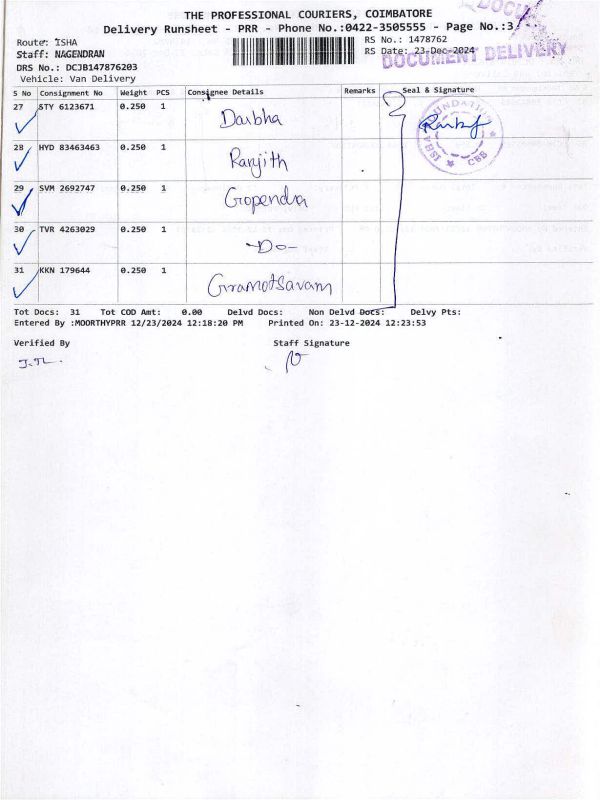 THE PROFESSIONAL COURIERS, COIMBATORE
Delivery Runsheet - PRR - Phone No.:0422-3505555 - Page No.:3
DOCU
Route: ISHA
RS No.: 1478762
Staff: NAGENDRAN
RS Date: 23-Dec-2024
DOCUMENT DELIVERY
DRS No.: DCJB147876203
Vehicle: Van Delivery
S No Consignment No Weight PCS Consignee Details Remarks Seal & Signature
27 STY 6123671 0.250 1 Darbha
28 HYD 83463463 0.250 1 Ranjith
29 SVM 2692747 0.250 1 Gopendra
30 TVR 4263029 0.250 1 -Do-
31 KKN 179644 0.250 1 Gramotsavam
ISHA FOUNDATION ★ CBB ★
Tot Docs: 31 Tot COD Amt: 0.00 Delvd Docs: Non Delvd Docs: Delvy Pts:
Entered By :MOORTHYPRR 12/23/2024 12:18:20 PM Printed On: 23-12-2024 12:23:53
Verified By Staff Signature